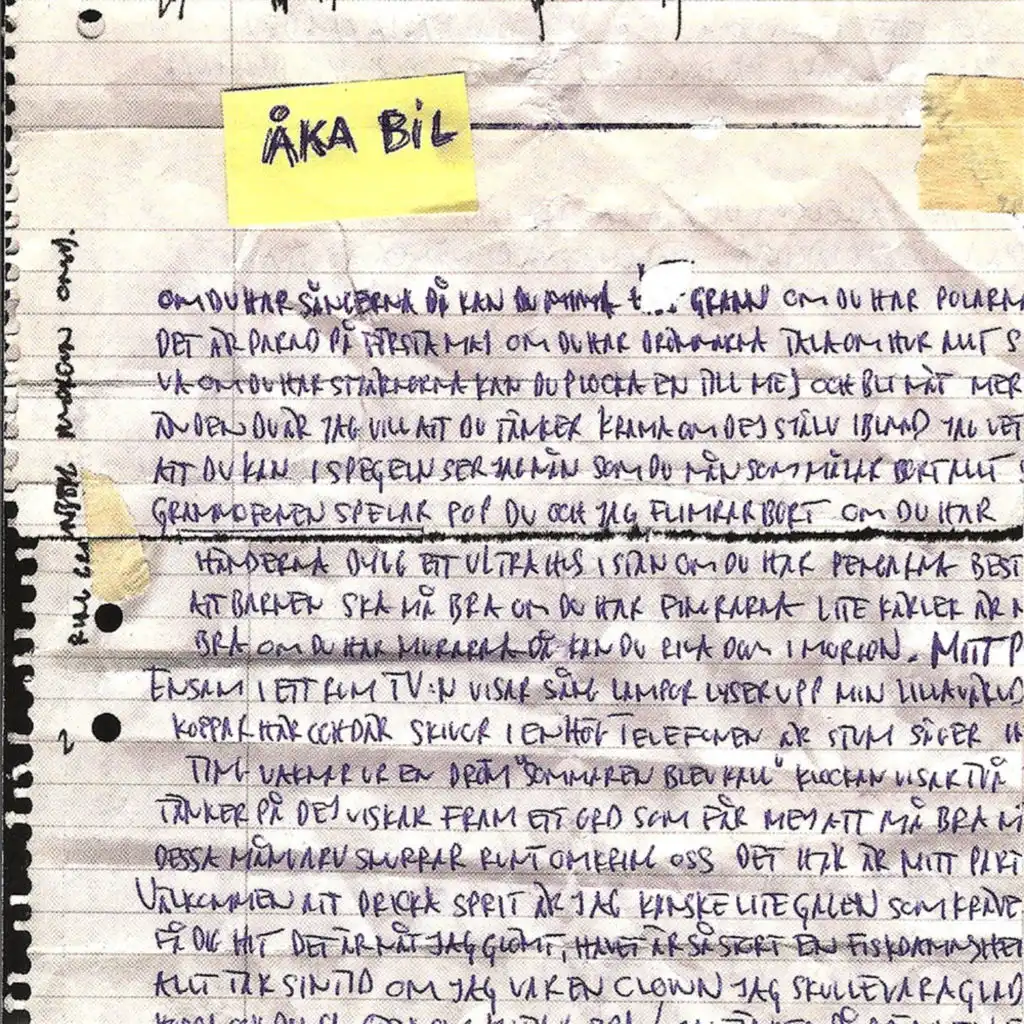 ÅKA BIL
OM DU HAR SÅNGERNA DÅ KAN DU MIMA GRANN OM DU HAR POLARNA
DET ÄR PARAD PÅ FÖRSTA MAJ OM DU HAR DRÖMMARNA TALA OM HUR ALLT S
VA OM DU HAR STJÄRNORNA KAN DU PLOCKA EN TILL MEJ OCH BLI NÅT MER
ÄN DEN DU ÄR JAG VILL ATT DU TÄNKER KRAMA OM DEJ SJÄLV IBLAND JAG VET
ATT DU KAN I SPEGELN SER JAG NÅN SOM DU NÅN SOM MÅLAR BORT ALLT S
GRAMMOFONEN SPELAR POP DU OCH JAG FLIMRAR BORT OM DU HAR
HÄNDERNA BYGG ETT ULTRAHUS I STAN OM DU HAR PENGARNA BEST
ATT BARNEN SKA MÅ BRA OM DU HAR FINGRARNA LITE KÄRLEK ÄR
BRA OM DU HAR MURARNA DÅ KAN DU RIVA DOM I MORGON. MITT P
ENSAM I ETT RUM TV:N VISAR SÅNG LAMPOR LYSER UPP MIN LILLA VÄRLD
KOPPAR HÄR OCH DÄR SKIVOR I EN HÖG TELEFONEN ÄR STUM SÄGER
TIM VAKNAR UR EN DRÖM "SOMMAREN BLEV KALL" KLOCKAN VISAR TVÅ
TÄNKER PÅ DEJ VISKAR FRAM ETT ORD SOM FÅR MEJ ATT MÅ BRA
DESSA MÅNVARV SNURRAR RUNT OMKRING OSS DET HÄR ÄR MITT PART
VÄLKOMMEN ATT DRICKA SPRIT ÄR JAG KANSKE LITE GALEN SOM KRÄVE
FÅ DIG HIT DET ÄR NÅT JAG GLÖMT, HAVET ÄR SÅ STORT EN FISKDAMM
ALLT TAR SIN TID OM JAG VAR EN CLOWN JAG SKULLE VARA GLAD